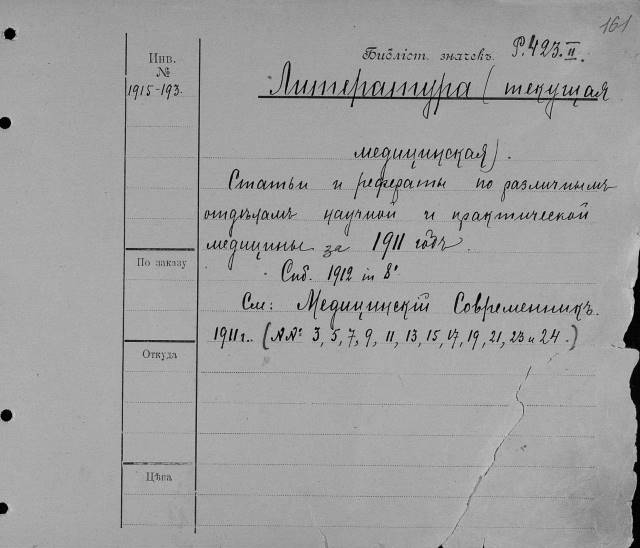 161
Инв. №
1915-193.
Библіот. значекъ. Р.423.II.
Литература (текущая
медицинская).
Статьи и рефераты по различнымъ
отдѣламъ научной и практической
медицины за 1911 годъ.
Спб. 1912 in 8°
См: Медицинскій Современникъ.
1911 г. (№№ 3, 5, 7, 9, 11, 13, 15, 17, 19, 21, 23 и 24.)
По заказу
Откуда
Цѣна